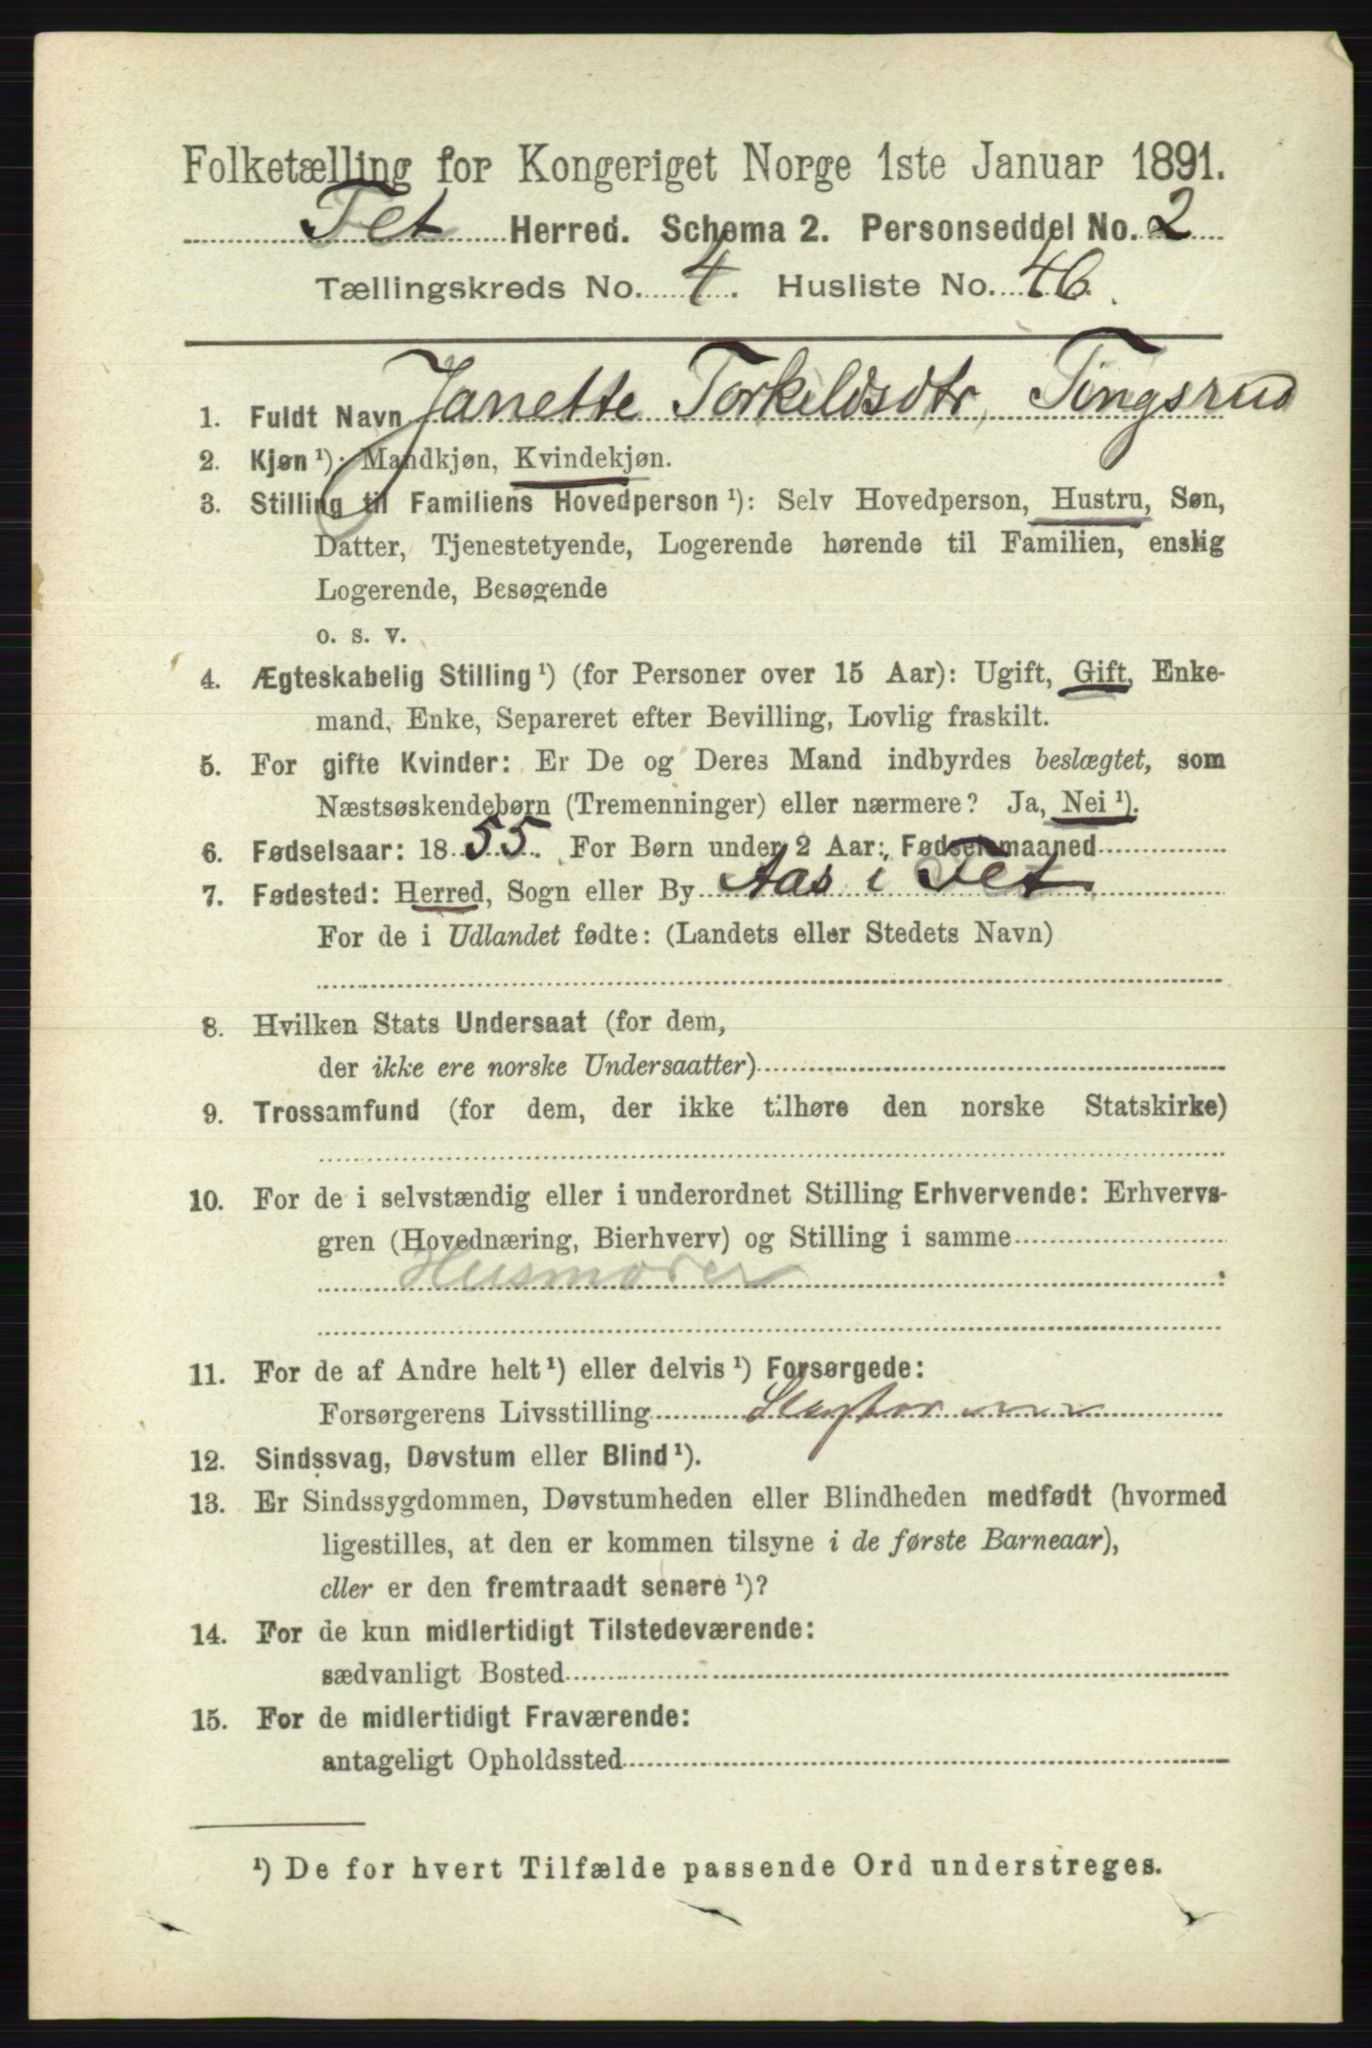 Folketælling for Kongeriget Norge 1ste Januar 1891.
Fet Herred. Schema 2. Personseddel No. 2
Tællingskreds No. 4. Husliste No. 46.
1. Fuldt Navn Janette Torkildsdtr, Tingsrud
2. Kjøn ¹): Mandkjøn, Kvindekjøn.
3. Stilling til Familiens Hovedperson ¹): Selv Hovedperson, Hustru, Søn,
Datter, Tjenestetyende, Logerende hørende til Familien, enslig
Logerende, Besøgende
o. s. v.
4. Ægteskabelig Stilling ¹) (for Personer over 15 Aar): Ugift, Gift, Enke-
mand, Enke, Separeret efter Bevilling, Lovlig fraskilt.
5. For gifte Kvinder: Er De og Deres Mand indbyrdes beslægtet, som
Næstsøskendebørn (Tremenninger) eller nærmere? Ja, Nei ¹).
6. Fødselsaar: 1855. For Børn under 2 Aar: Fødselsmaaned
7. Fødested: Herred, Sogn eller By Aas i Fet
For de i Udlandet fødte: (Landets eller Stedets Navn)
8. Hvilken Stats Undersaat (for dem,
der ikke ere norske Undersaatter)
9. Trossamfund (for dem, der ikke tilhøre den norske Statskirke)
10. For de i selvstændig eller i underordnet Stilling Erhvervende: Erhvervs-
gren (Hovednæring, Bierhverv) og Stilling i samme
Husmoder
11. For de af Andre helt ¹) eller delvis ¹) Forsørgede:
Forsørgerens Livsstilling
12. Sindssvag, Døvstum eller Blind ¹).
13. Er Sindssygdommen, Døvstumheden eller Blindheden medfødt (hvormed
ligestilles, at den er kommen tilsyne i de første Barneaar),
eller er den fremtraadt senere ¹)?
14. For de kun midlertidigt Tilstedeværende:
sædvanligt Bosted
15. For de midlertidigt Fraværende:
antageligt Opholdssted
¹) De for hvert Tilfælde passende Ord understreges.